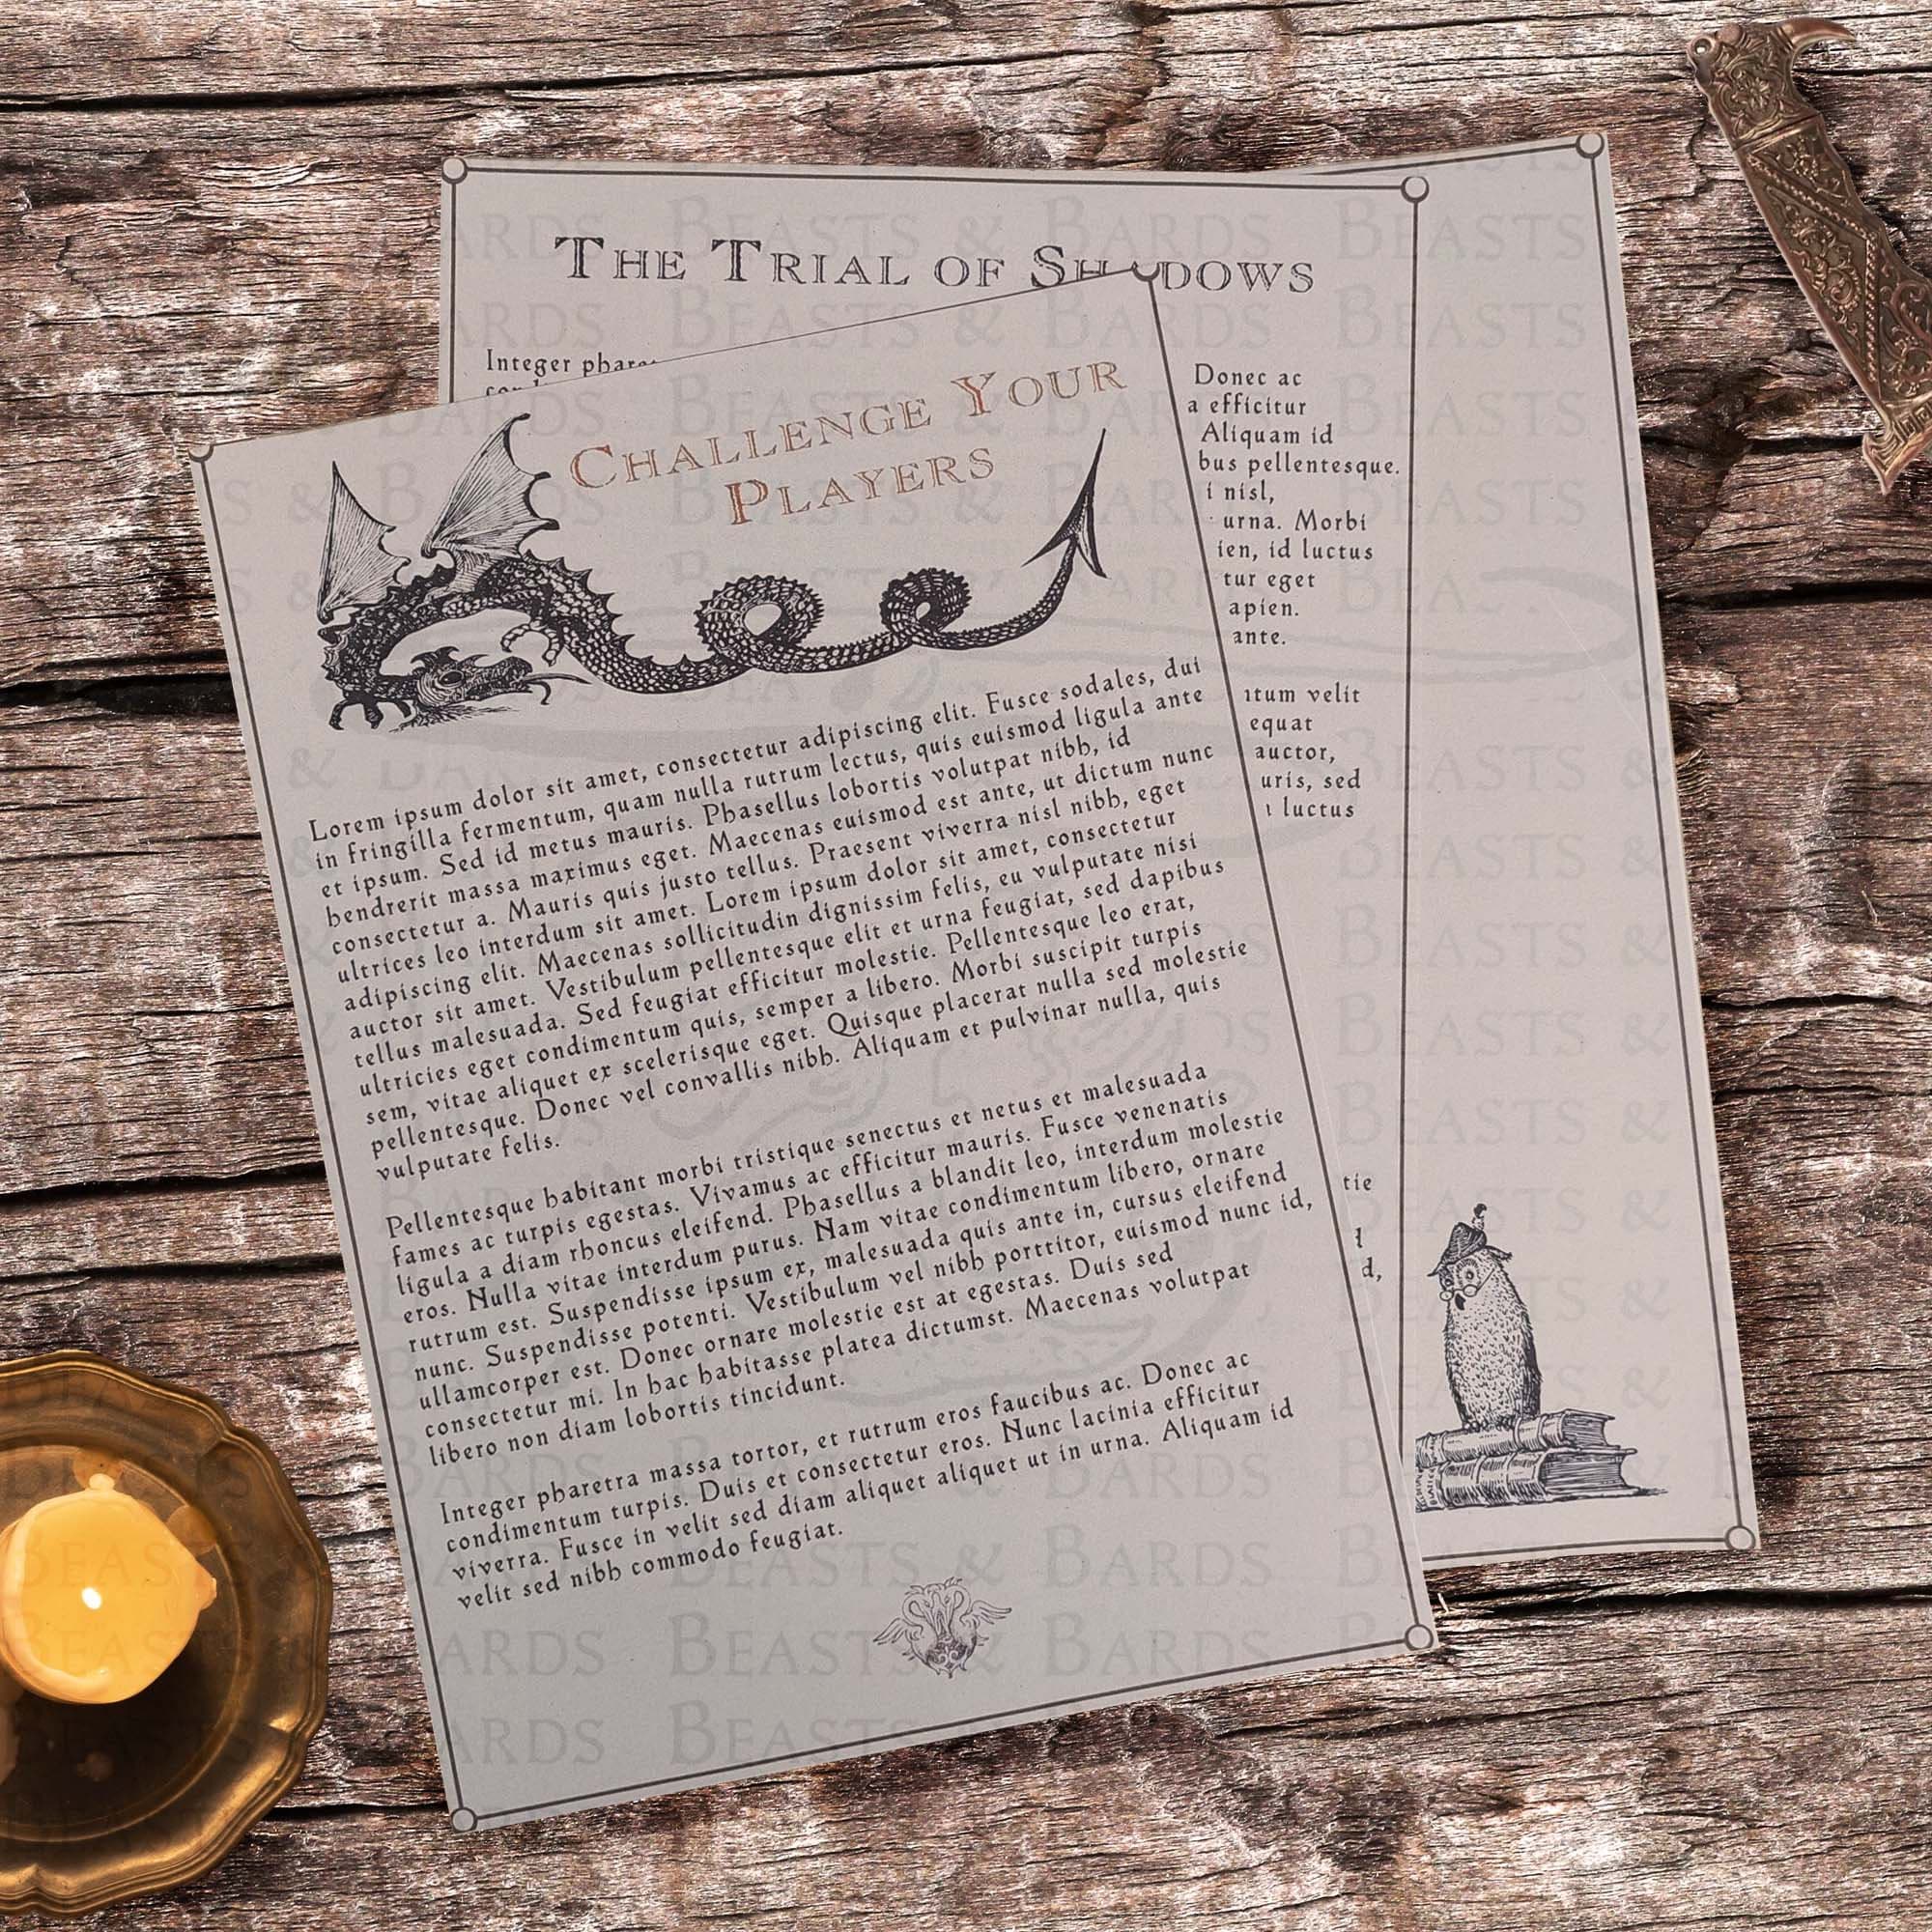 The Trial of Shadows
Integer
Donec ac
a efficitur
Aliquam id
bus pellentesque.
i nisl,
urna. Morbi
ien, id luctus
tur eget
apien.
ante.
itum velit
equat
auctor,
uris, sed
luctus
tie
d,
Challenge Your
Players
Lorem ipsum dolor sit amet, consectetur adipiscing elit. Fusce sodales, dui
in fringilla fermentum, quam nulla rutrum lectus, quis euismod ligula ante
et ipsum. Sed id metus mauris. Phasellus lobortis volutpat nibh, id
hendrerit massa maximus eget. Maecenas euismod est ante, ut dictum nunc
consectetur a. Mauris quis justo tellus. Praesent viverra nisl nibh, eget
ultrices leo interdum sit amet. Lorem ipsum dolor sit amet, consectetur
adipiscing elit. Maecenas sollicitudin dignissim felis, eu vulputate nisi
auctor sit amet. Vestibulum pellentesque elit et urna feugiat, sed dapibus
tellus malesuada. Sed feugiat efficitur molestie. Pellentesque leo erat,
ultricies eget condimentum quis, semper a libero. Morbi suscipit turpis
sem, vitae aliquet ex scelerisque eget. Quisque placerat nulla sed molestie
pellentesque. Donec vel convallis nibh. Aliquam et pulvinar nulla, quis
vulputate felis.
Pellentesque habitant morbi tristique senectus et netus et malesuada
fames ac turpis egestas. Vivamus ac efficitur mauris. Fusce venenatis
ligula a diam rhoncus eleifend. Phasellus a blandit leo, interdum molestie
eros. Nulla vitae interdum purus. Nam vitae condimentum libero, ornare
rutrum est. Suspendisse ipsum ex, malesuada quis ante in, cursus eleifend
nunc. Suspendisse potenti. Vestibulum vel nibh porttitor, euismod nunc id,
ullamcorper est. Donec ornare molestie est at egestas. Duis sed
consectetur mi. In hac habitasse platea dictumst. Maecenas volutpat
libero non diam lobortis tincidunt.
Integer pharetra massa tortor, et rutrum eros faucibus ac. Donec ac
condimentum turpis. Duis et consectetur eros. Nunc lacinia efficitur
viverra. Fusce in velit sed diam aliquet aliquet ut in urna. Aliquam id
velit sed nibh commodo feugiat.
Beasts & Bards